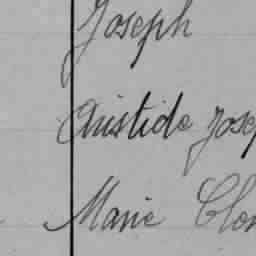 Joseph
Aristide Josep
Marie Clo